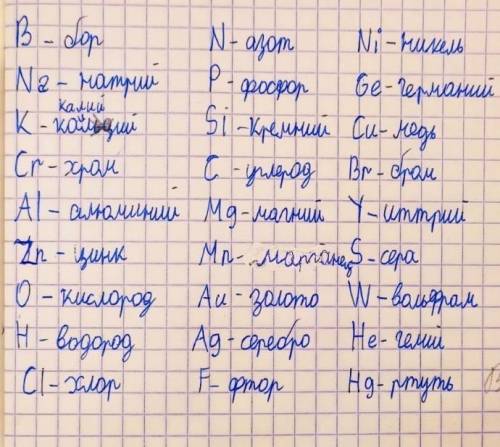 B - бор
Na - натрий
калий
K - кальций
Cr - хром
Al - алюминий
Zn - цинк
O - кислород
H - водород
Cl - хлор
N - азот
P - фосфор
Si - кремний
C - углерод
Mg - магний
Mn - марганец
Au - золото
Ag - серебро
F - фтор
Ni - никель
Ge - германий
Cu - медь
Br - бром
Y - иттрий
S - сера
W - вольфрам
He - гелий
Hg - ртуть